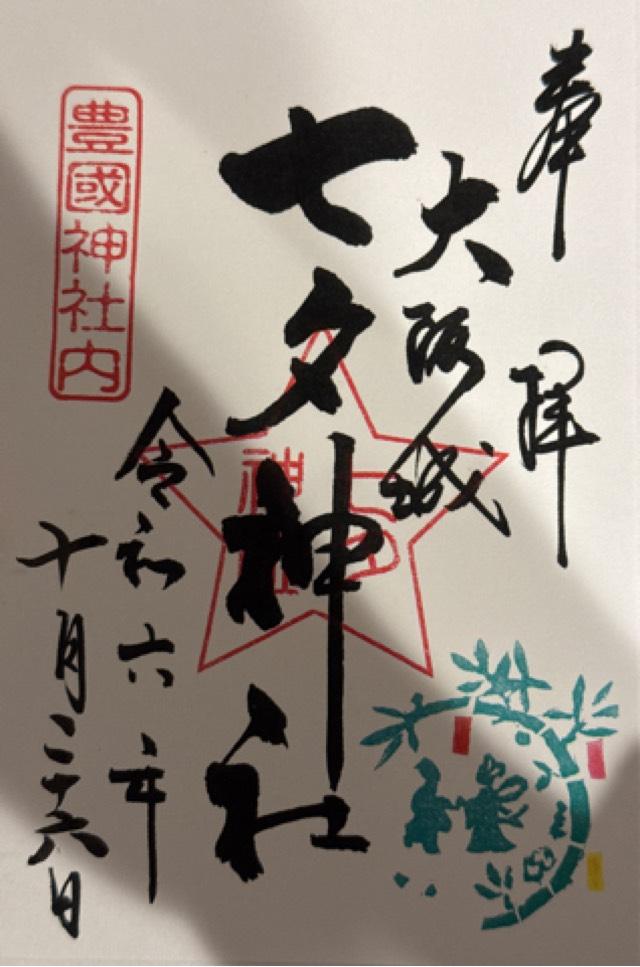 奉拝
大阪城
七夕神社
令和六年
十月二十六日
豊國神社内